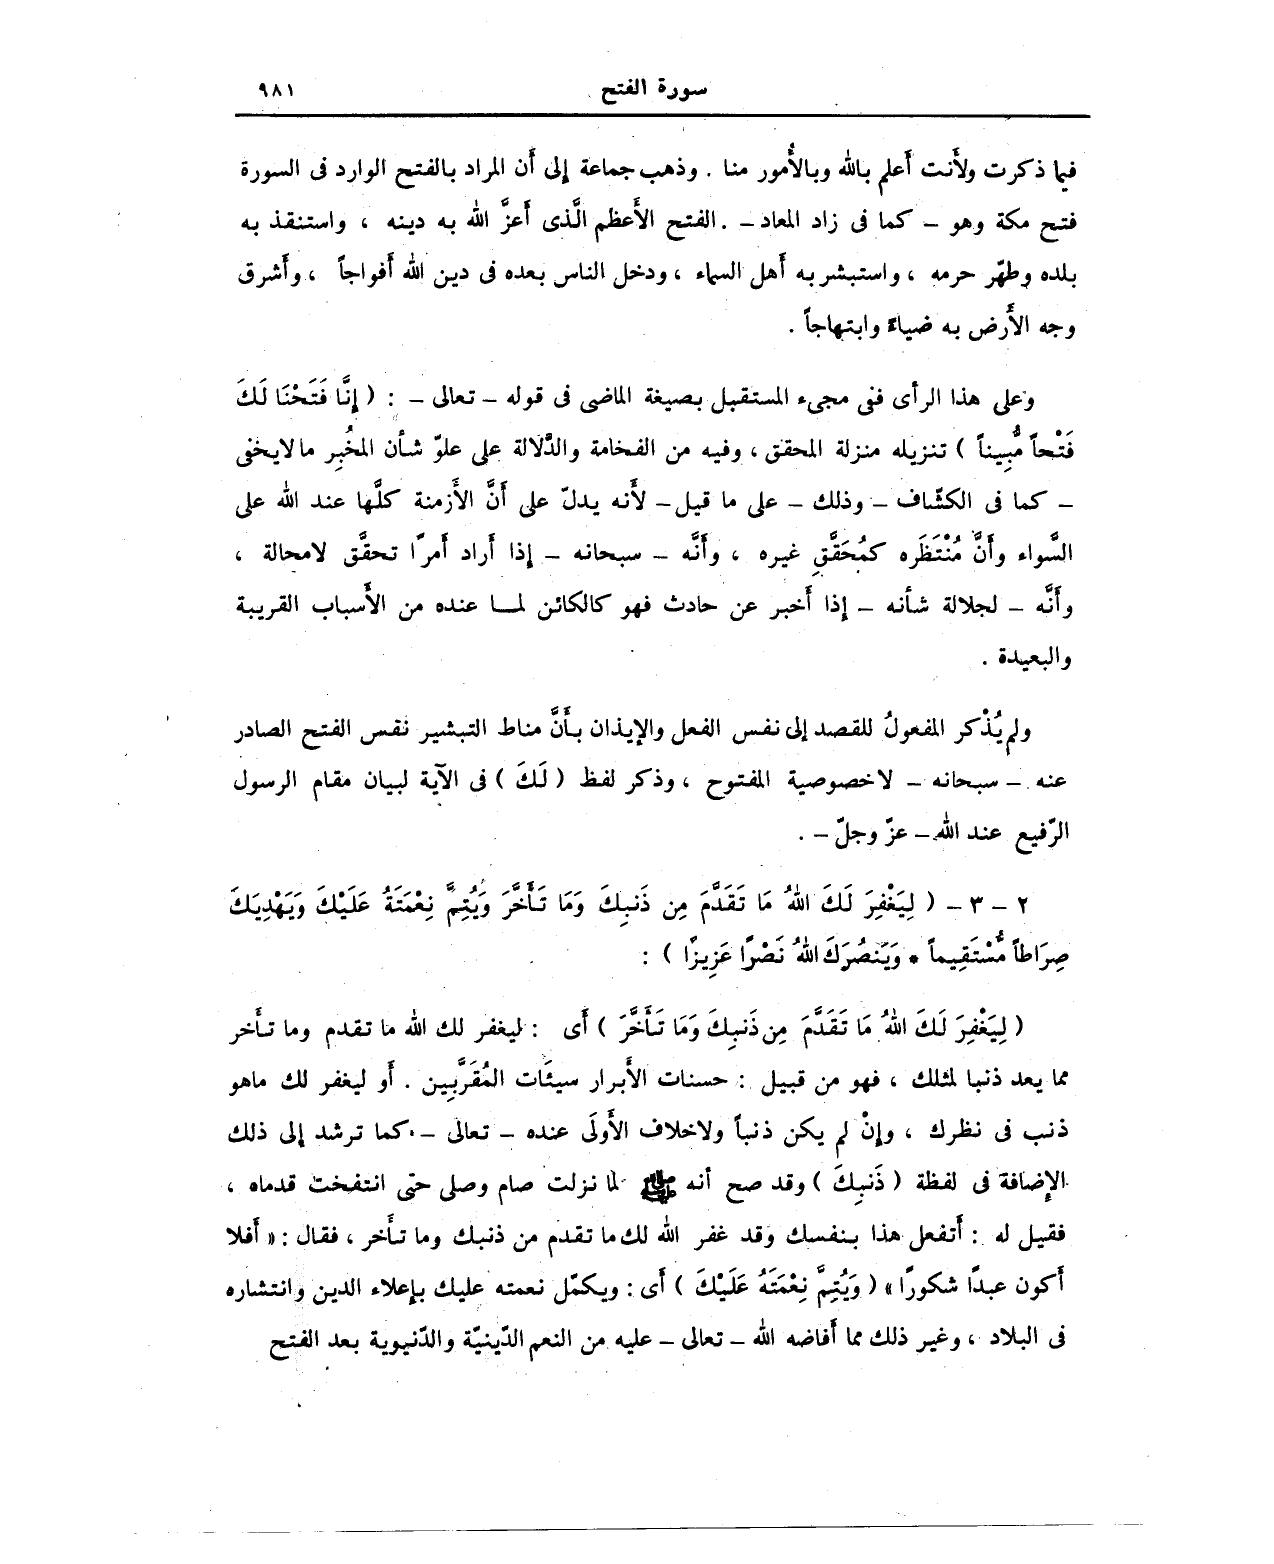 سورة الفتح ٩٨١
فيما ذكرت ولأَنت أَعلم بالله وبالأُمور منا . وذهب جماعة إلى أَن المراد بالفتح الوارد فى السورة
فتح مكة وهو – كما فى زاد المعاد – . الفتح الأَعظم الَّذى أَعزَّ الله به دينه ، واستنقذ به
بلده وطهّر حرمه ، واستبشر به أَهل السماء ، ودخل الناس بعده فى دين الله أَفواجاً ، وأَشرق
وجه الأَرض به ضياءً وابتهاجاً .
وعلى هذا الرأى ففى مجىء المستقبل بصيغة الماضى فى قوله – تعالى – : ( إِنَّا فَتَحْنَا لَكَ
فَتْحاً مُّبِيناً ) تنزيله منزلة المحقق ، وفيه من الفخامة والدَّلالة على علوّ شأن المخْبِر ما لايخفى
– كما فى الكشّاف – وذلك – على ما قيل – لأَنه يدلّ على أَنَّ الأَزمنة كلَّها عند الله على
السَّواء وأَنَّ مُنْتَظَره كمُحَقَّقِ غيره ، وأَنَّه – سبحانه – إذا أَراد أَمرًا تحقَّق لامحالة ،
وأَنَّه – لجلالة شأنه – إذا أَخبر عن حادث فهو كالكائن لمــا عنده من الأَسباب القريبة
والبعيدة .
ولم يُذْكر المفعولُ للقصد إلى نفس الفعل والإيذان بأَنَّ مناط التبشير نفس الفتح الصادر
عنه – سبحانه – لاخصوصية المفتوح ، وذكر لفظ ( لَكَ ) فى الآية لبيان مقام الرسول
الرّفيع عند الله – عزّ وجلّ – .
٢ – ٣ – ( لِيَغْفِرَ لَكَ اللهُ مَا تَقَدَّمَ مِن ذَنبِكَ وَمَا تَأَخَّرَ وَيُتِمَّ نِعْمَتَهُ عَلَيْكَ وَيَهْدِيَكَ
صِرَاطاً مُّسْتَقِيماً * وَيَنصُرَكَ اللهُ نَصْرًا عَزِيزًا ) :
( لِيَغْفِرَ لَكَ اللهُ مَا تَقَدَّمَ مِن ذَنبِكَ وَمَا تَأَخَّرَ ) أَى : ليغفر لك الله ما تقدم وما تأَخر
مما يعد ذنبا لمثلك ، فهو من قبيل : حسنات الأَبرار سيئَات المُقَرَّبين . أَو ليغفر لك ماهو
ذنب فى نظرك ، وإنْ لم يكن ذنباً ولاخلاف الأَولَى عنده – تعالى – كما ترشد إلى ذلك
الإِضافة فى لفظة ( ذَنبِكَ ) وقد صح أنه ﷺ لما نزلت صام وصلى حتى انتفخت قدماه ،
فقيل له : أَتفعل هذا بنفسك وقد غفر الله لك ما تقدم من ذنبك وما تأَخر ، فقال : « أَفلا
أَكون عبدًا شكورًا » ( وَيُتِمَّ نِعْمَتَهُ عَلَيْكَ ) أَى : ويكمّل نعمته عليك بإعلاء الدين وانتشاره
فى البلاد ، وغير ذلك مما أَفاضه الله – تعالى – عليه من النعم الدّينيّة والدّنيوية بعد الفتح